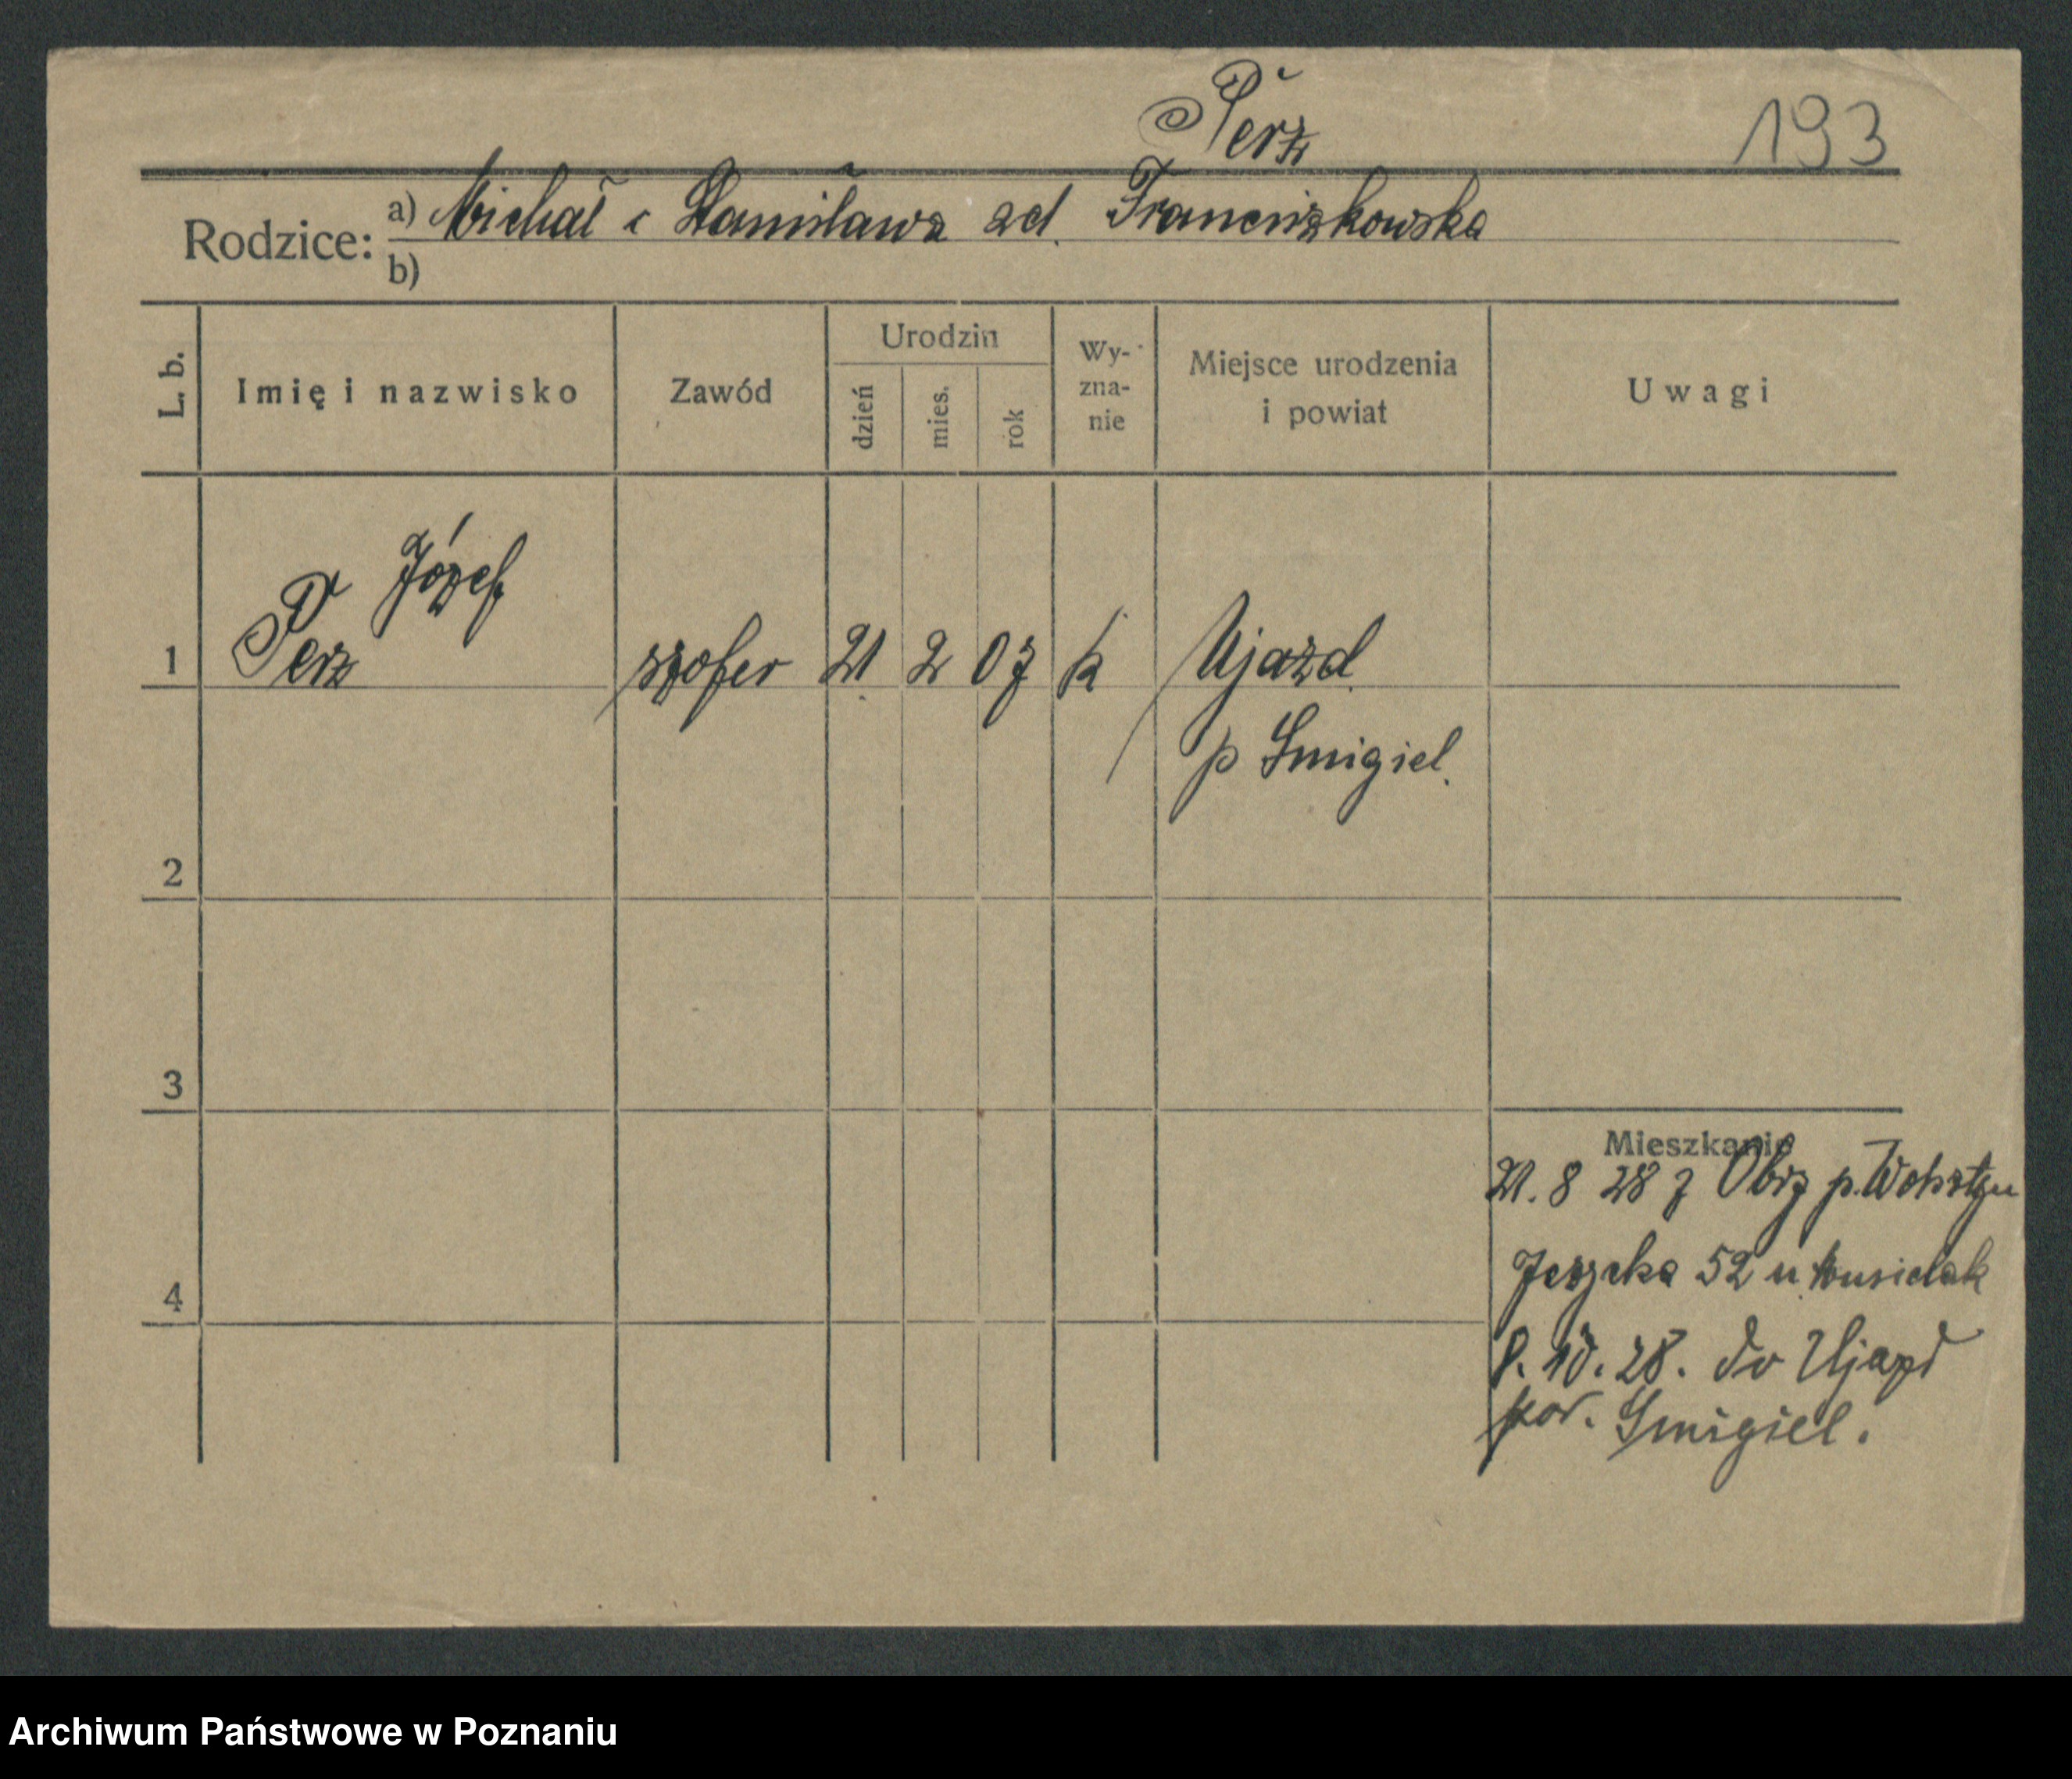 Perz 193
Rodzice: a) Michał i Stanisława zd. Franciszkowska
b)
L. b. Imię i nazwisko Zawód Urodzin dzień mies. rok Wy-zna-nie Miejsce urodzenia i powiat Uwagi
Józef
1 Perz szofer 21 2 07 k Ujazd
p Smigiel.
2
3
Mieszkanie
21. 8 28 z p. Wolsztyn
52 u
4
8. 10. 28. do Ujazd
pow. Smigiel.
Archiwum Państwowe w Poznaniu